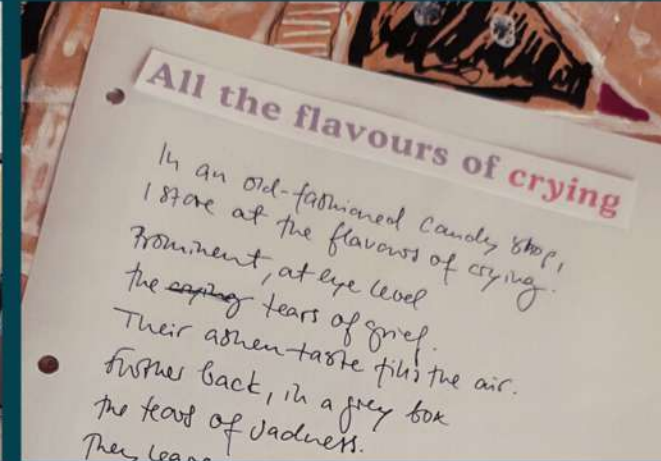 All the flavours of crying
In an old-fashioned candy shop,
I stare at the flavours of crying.
Prominent, at eye level
the crying tears of grief.
Their ashen taste fills the air.
Further back, in a grey box
the tears of sadness.
They leave